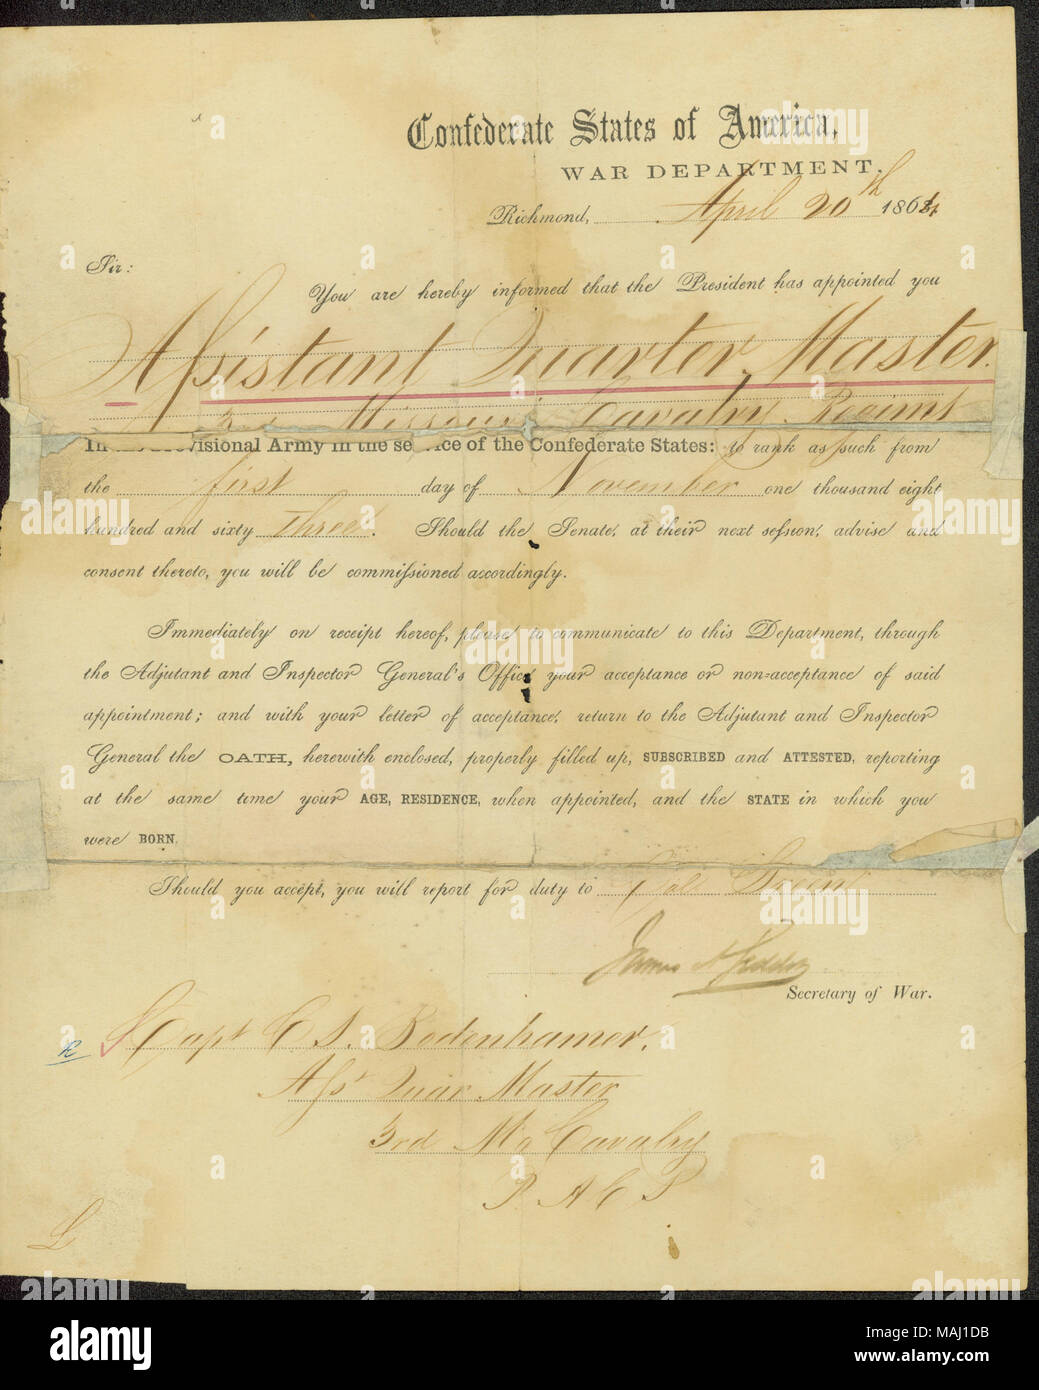 Confederate States of America,
WAR DEPARTMENT.
Richmond, April 20th 1864
Sir:
You are hereby informed that the President has appointed you
Assistant Quarter Master.
3rd Missouri Cavalry Regimt
In the Provisional Army in the service of the Confederate States: to rank as such from
the first day of November one thousand eight
hundred and sixty three. Should the Senate, at their next session, advise and
consent thereto, you will be commissioned accordingly.
Immediately on receipt hereof, please to communicate to this Department, through
the Adjutant and Inspector General's Office, your acceptance or non-acceptance of said
appointment; and with your letter of acceptance, return to the Adjutant and Inspector
General the OATH, herewith enclosed, properly filled up, SUBSCRIBED and ATTESTED, reporting
at the same time your AGE, RESIDENCE, when appointed, and the STATE in which you
were BORN.
Should you accept, you will report for duty to Col Greene
James A Seddon
Secretary of War.
Capt C S. Bodenhamer.
Asst Quar Master
3rd Mo Cavalry
P. A C S
L
alamy
Image ID: MAJ1DB
www.alamy.com